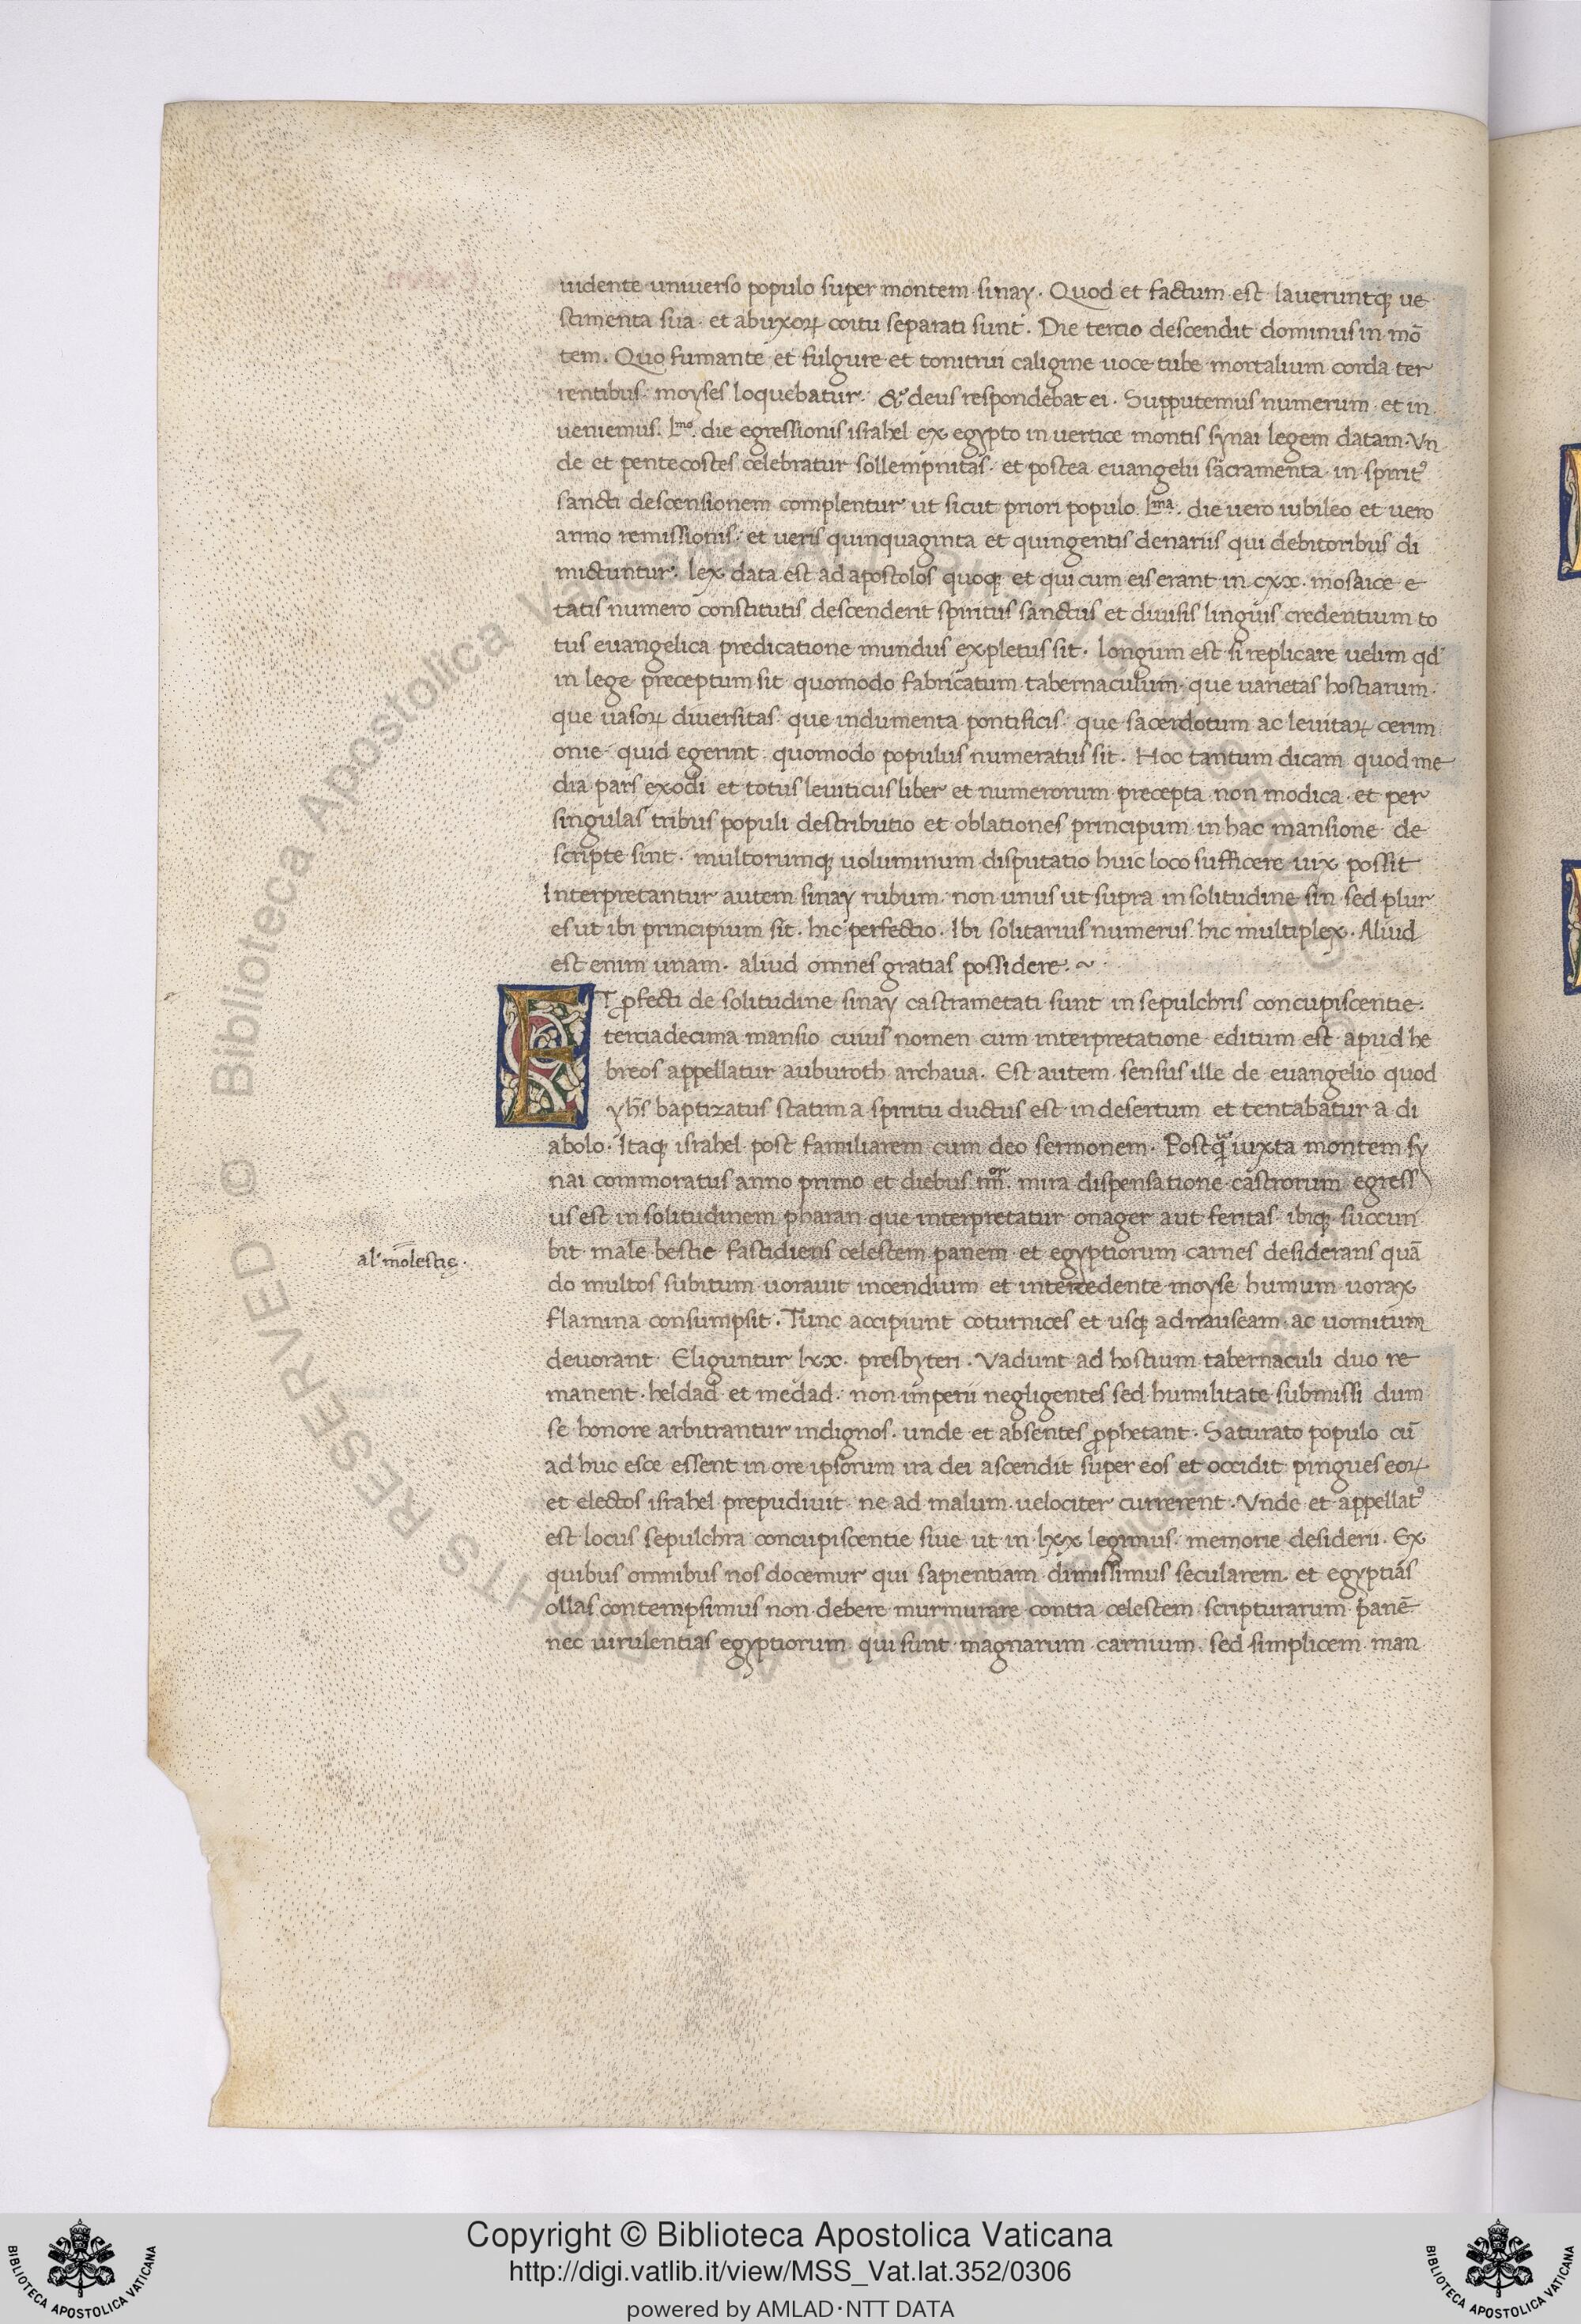 uidente uniuerso populo super montem sinay. Quod et factum est laueruntq; ue
stimenta sua et abuxoꝝ coitu separati sunt. Die tercio descendit dominus in mō
tem. Quo fumante et fulgure et tonitrui caligine uoce tube mortalium corda ter
rentibus moyses loquebatur. & deus respondebat ei. Supputemus numerum et in
ueniemus Lmo. die egressionis israhel ex egypto in uertice montis synai legem datam. Vn
de et pentecostes celebratur sollempnitas et postea euangelii sacramenta in spirit⁹
sancti descensionem complentur ut sicut priori populo Lma. die uero iubileo et uero
anno remissionis et ueris quinquaginta et quingentis denariis qui debitoribus di
mictuntur. lex data est ad apostolos quoq; et qui cum eis erant in cxx. mosaice e
tatis numero constitutis descenderit spiritus sanctus et diuisis linguis credentium to
tus euangelica predicatione mundus expletus sit. longum est si replicare uelim qd
in lege preceptum sit quomodo fabricatum tabernaculum que uarietas hostiarum
que uasoꝝ diuersitas que indumenta pontificis que sacerdotum ac leuitaꝝ cerim
onie quid egerint quomodo populus numeratus sit. Hoc tantum dicam quod me
dia pars exodi et totus leuiticus liber et numerorum precepta non modica et per
singulas tribus populi destributio et oblationes principum in hac mansione de
scripte sint. multorumq; uoluminum disputatio huic loco sufficere uix possit
Interpretantur autem sinay rubum non unus ut supra in solitudine sin sed plur
es ut ibi principium sit. hic perfectio. Ibi solitarius numerus hic multiplex. Aliud
est enim unam. aliud omnes gratias possidere. ~
ET ꝓfecti de solitudine sinay castrametati sunt in sepulchris concupiscentie.
terciadecima mansio cuius nomen cum interpretatione editum est apud he
breos appellatur auburoth archaua. Est autem sensus ille de euangelio quod
yhs̄ baptizatus statim a spiritu ductus est in desertum et tentabatur a di
abolo. Itaq; israhel post familiarem cum deo sermonem. Postq̄ iuxta montem sy
nai commoratus anno primo et diebus iiiior. mira dispensatione castrorum egress
us est in solitudinem pharan que interpretatur onager aut feritas ibiq; succun
bit male bestie fastidiens celestem panem et egyptiorum carnes desiderans quā
al' molestie.
do multos subitum uorauit incendium et intercedente moyse humum uorax
flamina consumpsit. Tunc accipiunt coturnices et usq; ad nauseam ac uomitum
deuorant. Eliguntur lxx. presbyteri. Vadunt ad hostium tabernaculi duo re
manent. heldad et medad non imperii negligentes sed humilitate submissi dum
se honore arbitrantur indignos. unde et absentes ꝓphetant. Saturato populo cū
ad huc esce essent in ore ipsorum ira dei ascendit super eos et occidit pingues eoꝝ
et electos israhel prepudiuit ne ad malum uelociter currerent. Vnde et appellat⁹
est locus sepulchra concupiscentie siue ut in lxx legimus memorie desiderii. Ex
quibus omnibus nos docemur qui sapientiam dimissimus secularem et egyptias
ollas contempsimus non debere murmurare contra celestem scripturarum panē
nec uirulentias egyptiorum qui sunt magnarum carnium. sed simplicem man
© Biblioteca Apostolica Vaticana ALL RIGHTS RESERVED
Copyright © Biblioteca Apostolica Vaticana
http://digi.vatlib.it/view/MSS_Vat.lat.352/0306
powered by AMLAD·NTT DATA
BIBLIOTECA APOSTOLICA VATICANA
BIBLIOTECA APOSTOLICA VATICANA